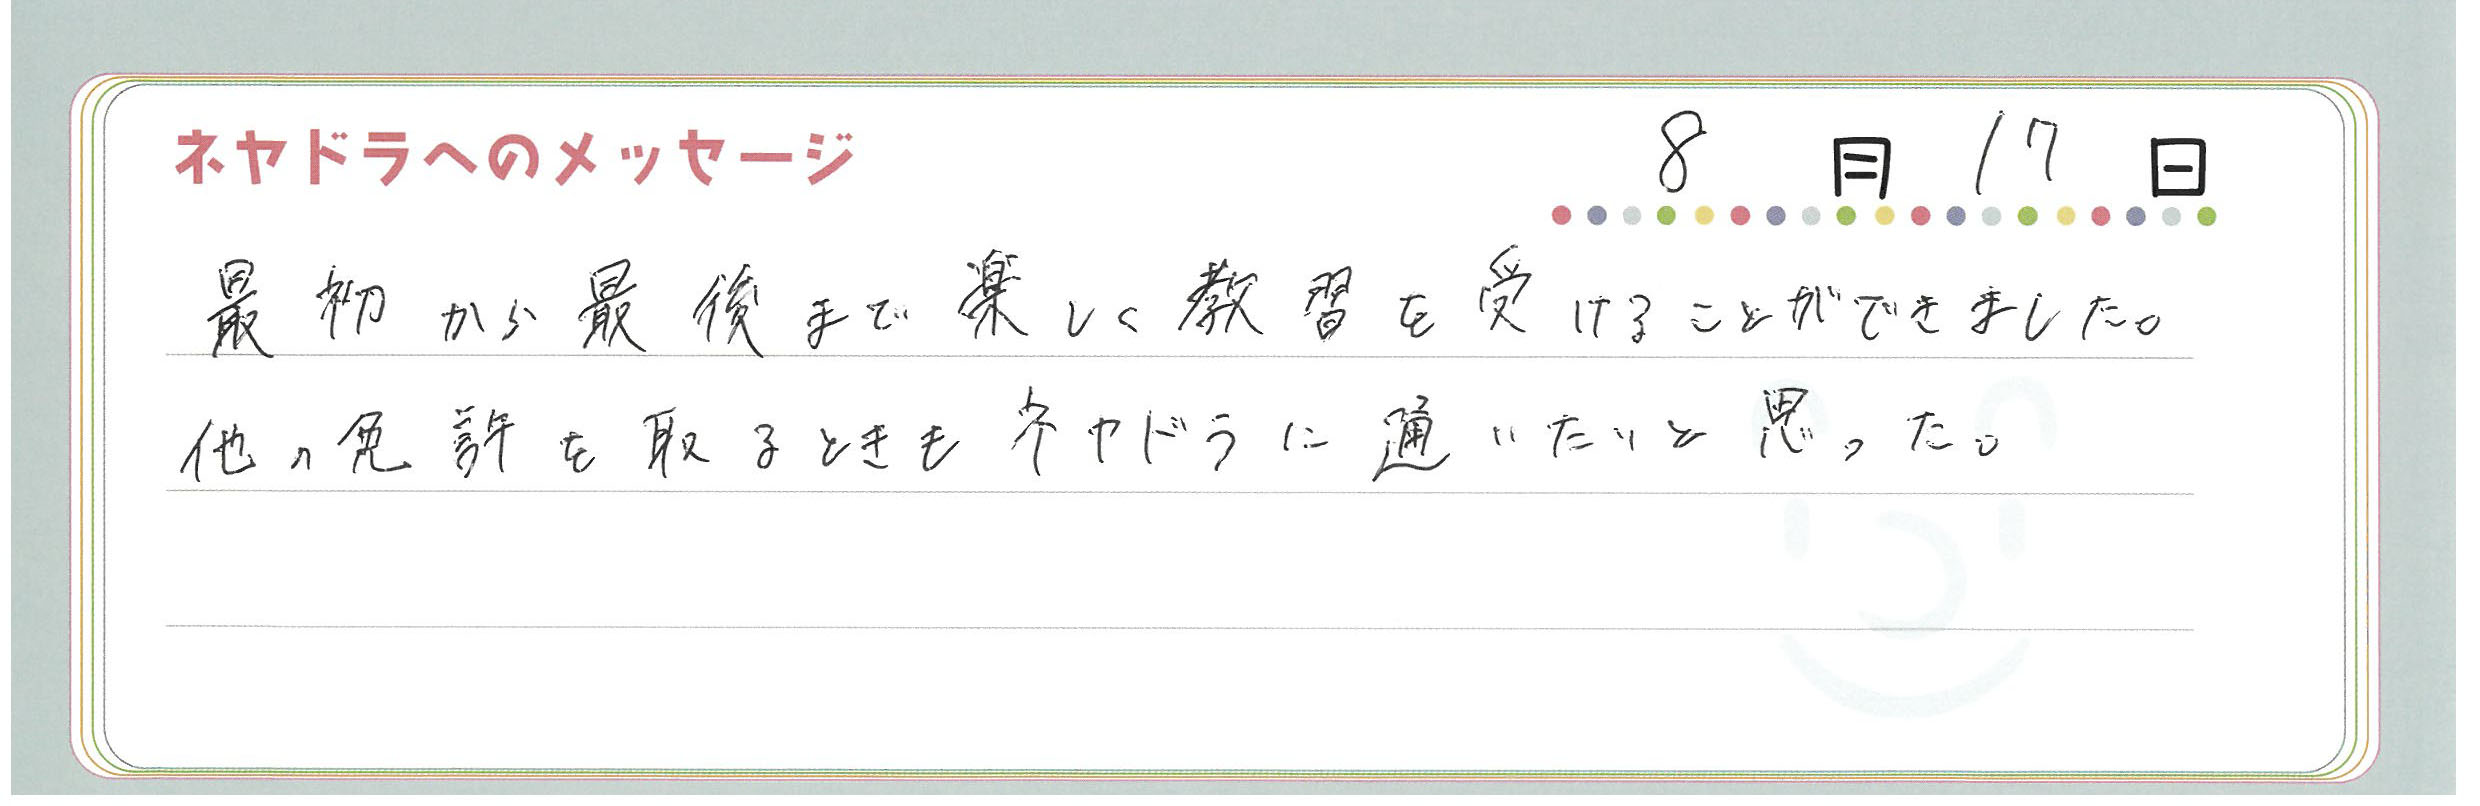 ネヤドラへのメッセージ 8月17日
最初から最後まで楽しく教習を受けることができました。
他の免許を取るときもネヤドラに通いたいと思った。